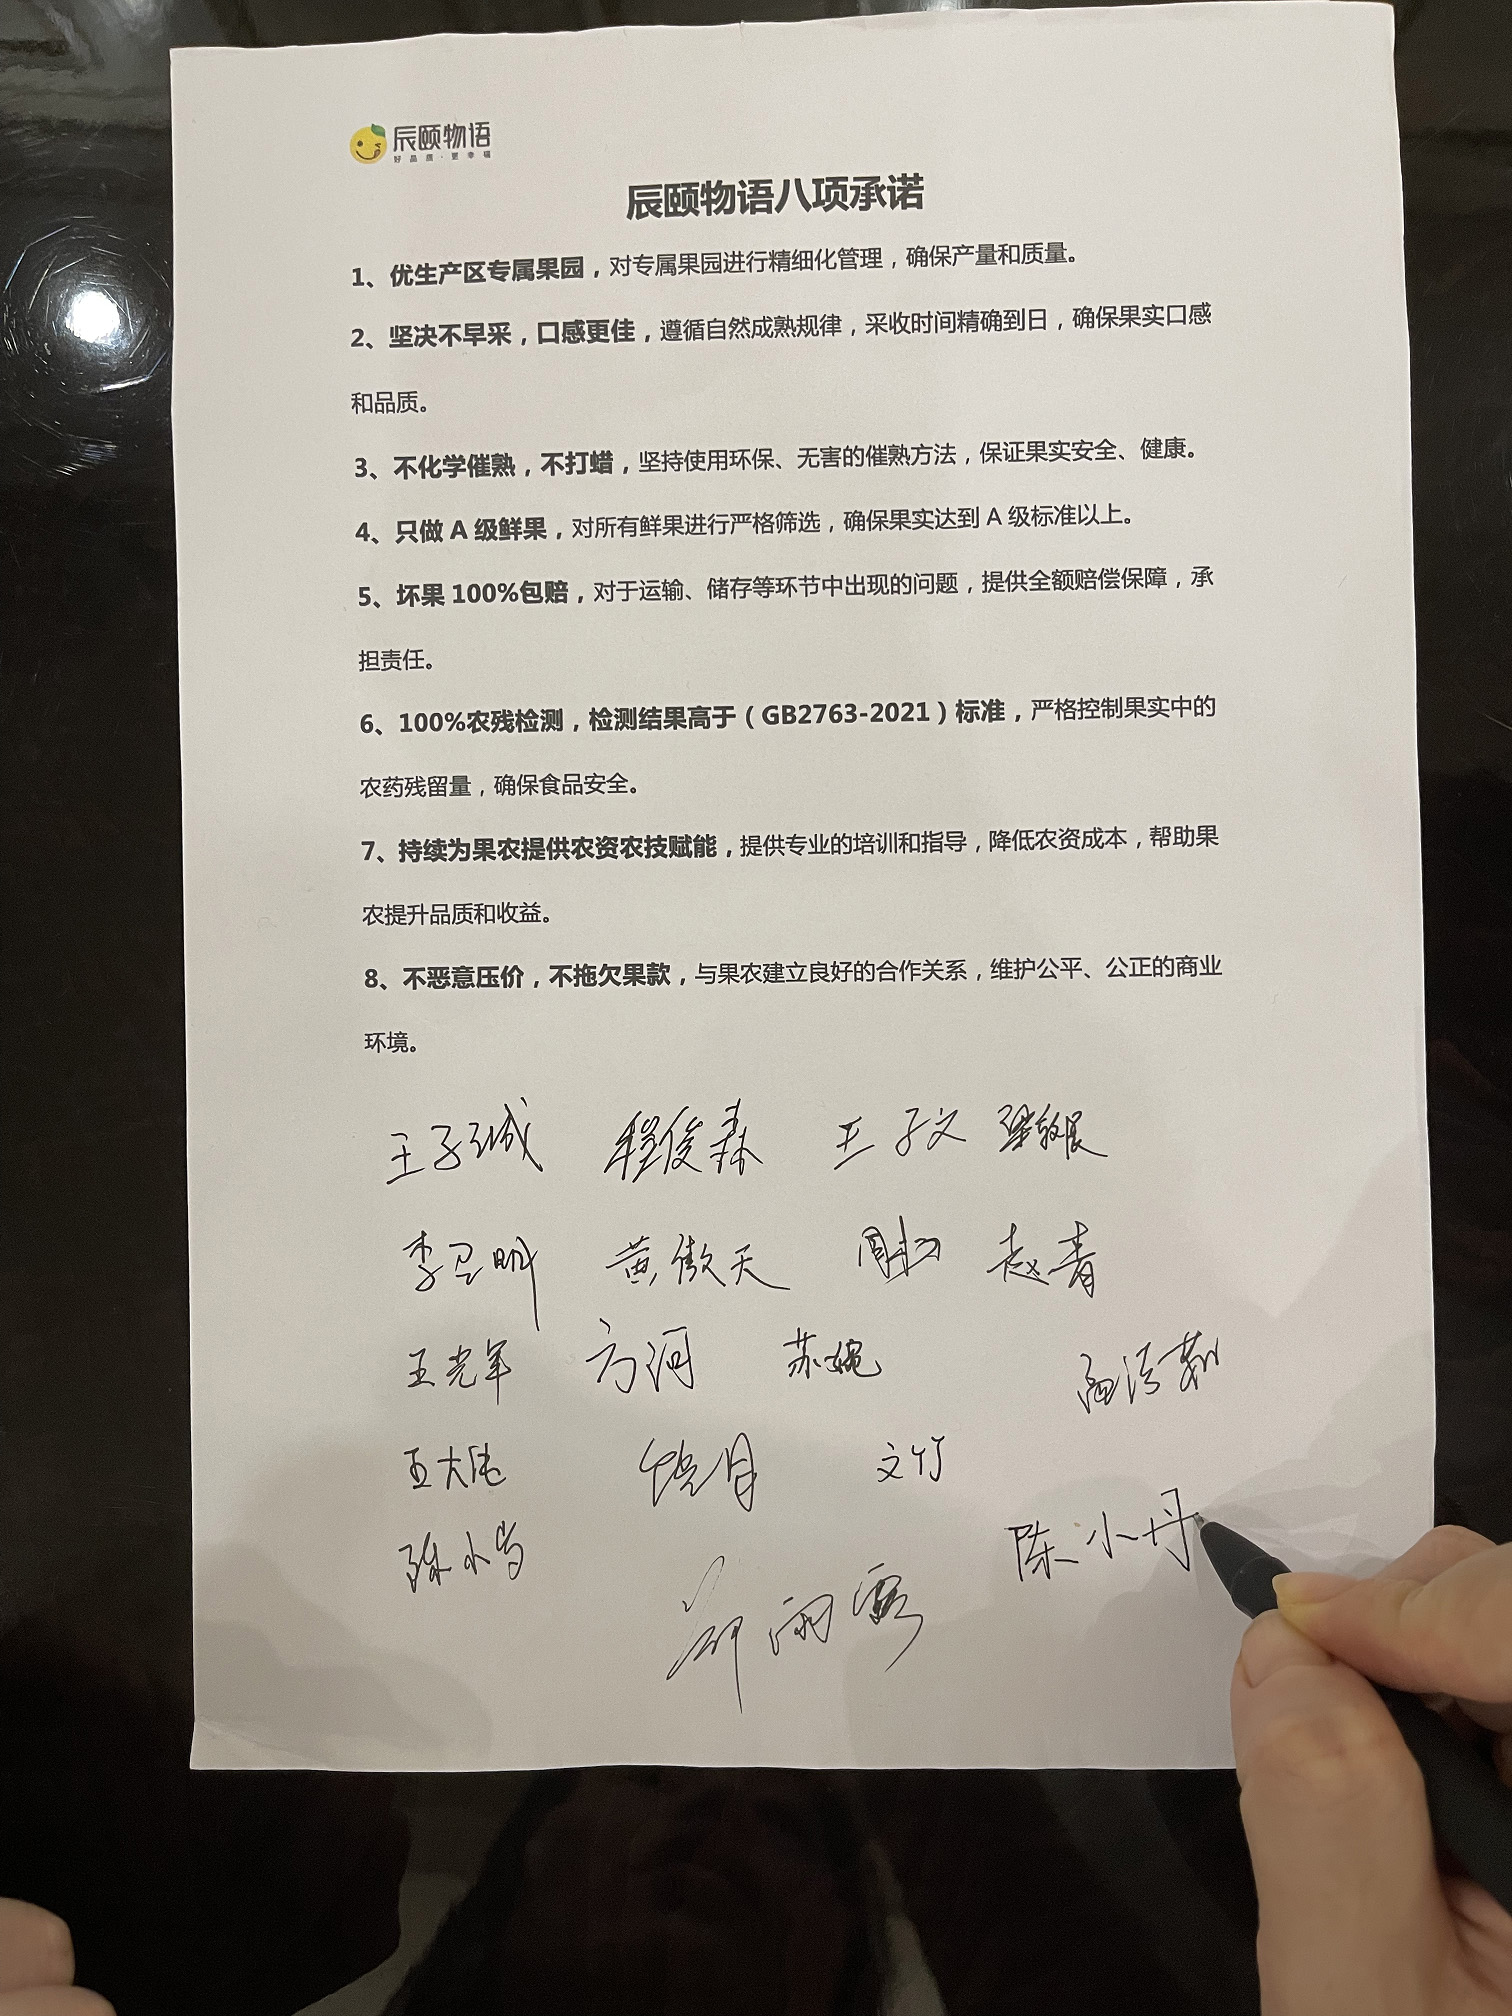 辰颐物语
好品质·更幸福
辰颐物语八项承诺
1、优生产区专属果园，对专属果园进行精细化管理，确保产量和质量。
2、坚决不早采，口感更佳，遵循自然成熟规律，采收时间精确到日，确保果实口感
和品质。
3、不化学催熟，不打蜡，坚持使用环保、无害的催熟方法，保证果实安全、健康。
4、只做 A 级鲜果，对所有鲜果进行严格筛选，确保果实达到 A 级标准以上。
5、坏果 100%包赔，对于运输、储存等环节中出现的问题，提供全额赔偿保障，承
担责任。
6、100%农残检测，检测结果高于（GB2763-2021）标准，严格控制果实中的
农药残留量，确保食品安全。
7、持续为果农提供农资农技赋能，提供专业的培训和指导，降低农资成本，帮助果
农提升品质和收益。
8、不恶意压价，不拖欠果款，与果农建立良好的合作关系，维护公平、公正的商业
环境。
王子诚 程俊森 王子文
黄傲天 赵青
王光军 方河 苏婉
文竹
陈小丹